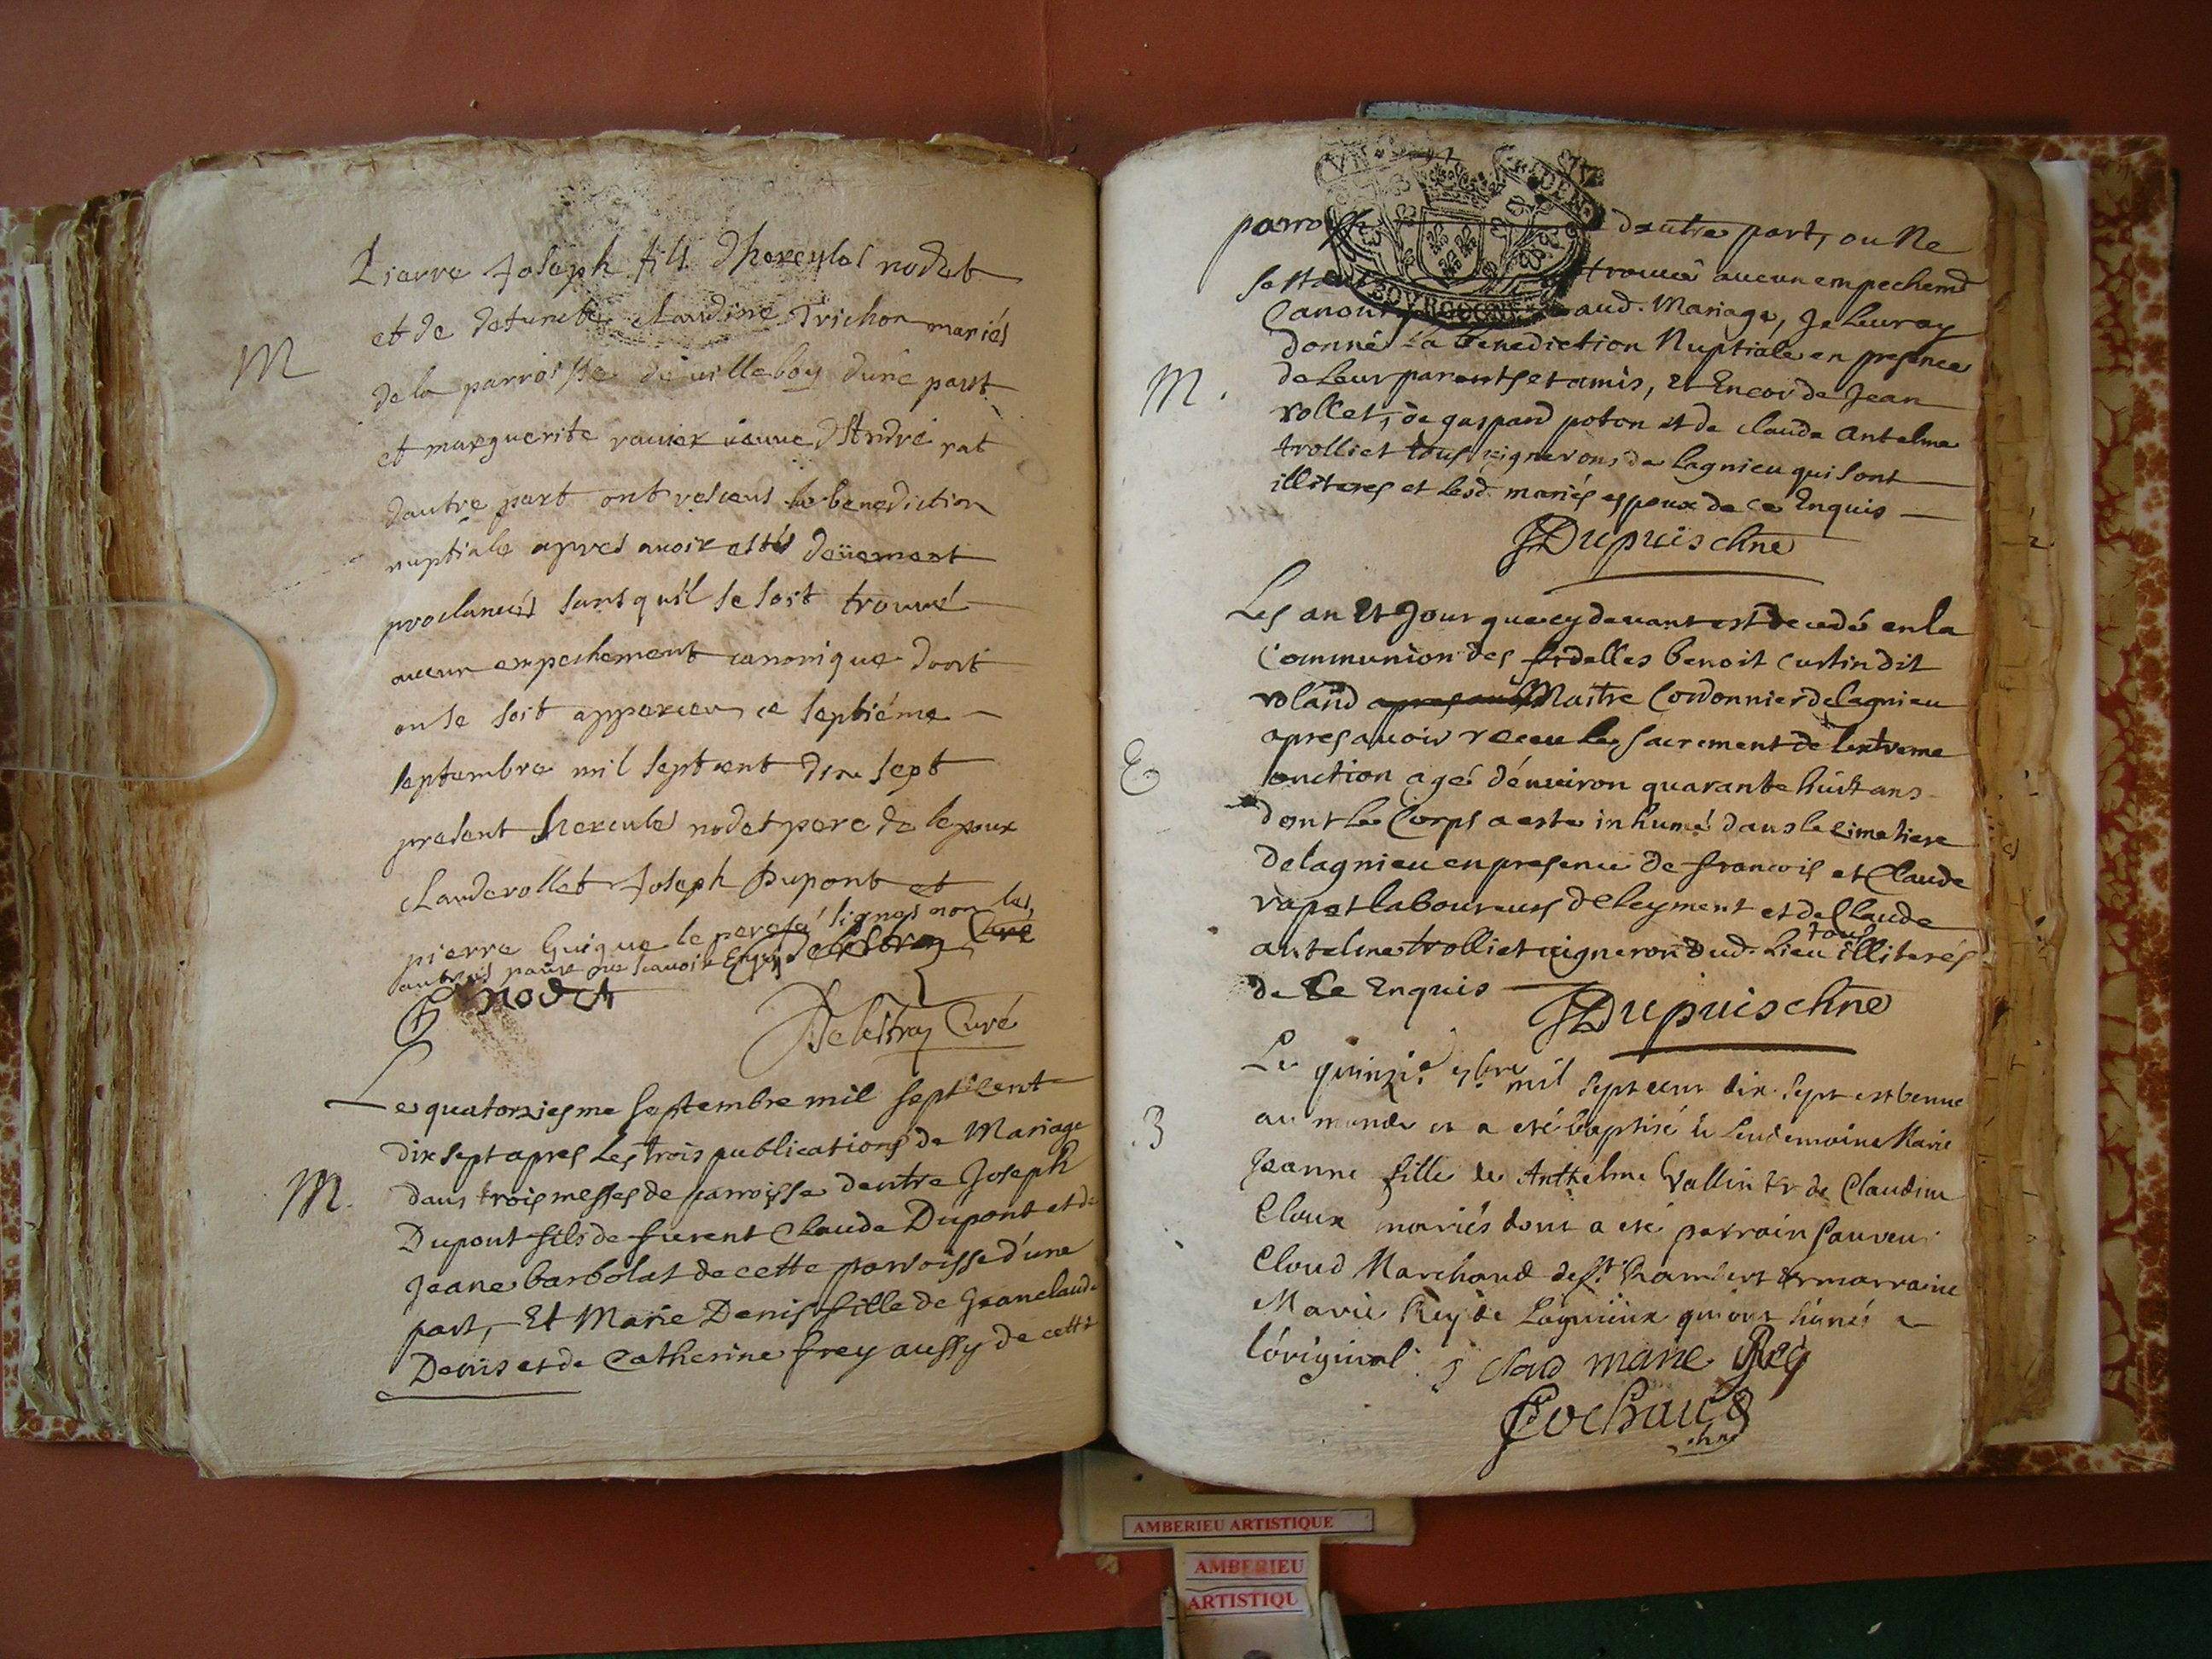 M
Pierre Joseph fils d'hercules nodet
et de defuncte claudine Trichon mariés
de la parroisse de villeboy d'une part
et marguerite ravier veuve d'André rat
dautre part ont resceus la benediction
nuptiale apres avoir estés deüement
proclamés sans qu'il se soit trouvé
aucun empeschement canonique dont
on se soit apperceu ce septiéme
septembre mil sept cent dix sept
present hercules nodet pere de lepoux
claude rollet Joseph Dupont et
pierre Guigue le pere a signes non les
autres pour ne scavoir Enquis Delestray Curé
nodet
Delestray Curé
M.
Le quatorziesme septembre mil sept cent
dix sept apres Les trois publications de Mariage
dans trois messes de parroisse dentre Joseph
Dupont fils de furent Claude Dupont et de
Jeane barbolat de cette parroisse d'une
part, Et Marie Denis fille de Jeanclaude
Denis et de Catherine frey aussy de cette
parroisse dautre part, ou Ne
trouvé aucun empechemt
BOURGOGNE
aud. Mariage, Je Leur ay
donné La benediction Nuptiale en presence
M.
de Leur parents et amis, et Encor de Jean
rollet, de gaspard poton et de claude antelme
trolliet tous vignerons de lagnieu qui sont
illiteres et lesd. mariés espoux de ce Enquis
JDupuis chne
Les an et Jour que cy devant est decedé en la
Communion des fidelles benoit curtin dit
roland Maitre Cordonnier de lagnieu
apres avoir receu le sacrement de lextreme
onction agé d'environ quarante huit ans
dont le Corps a este inhumé dans le cimetiere
de lagnieu en presence de francois et Claude
vapet laboureurs de leyment et de Claude
antelme trolliet vigneron dud. Lieu tous illiterés
de Ce Enquis
JDupuis chne
3
Le quinzie. 7bre mil sept cent dix sept est venue
au monde et a eté baptisé le lendemain Marie
Jeanne fille de Anthelme Vallin et de Claudine
Cloux mariés dont a eté parrain sauveur
Cloud Marchand de st. Rambert et marraine
Marie Rey de Lagnieux qui ont signés a
l'original. s Cloud marie Rey
Cochaud
chne
AMBERIEU ARTISTIQUE
AMBERIEU
ARTISTIQU